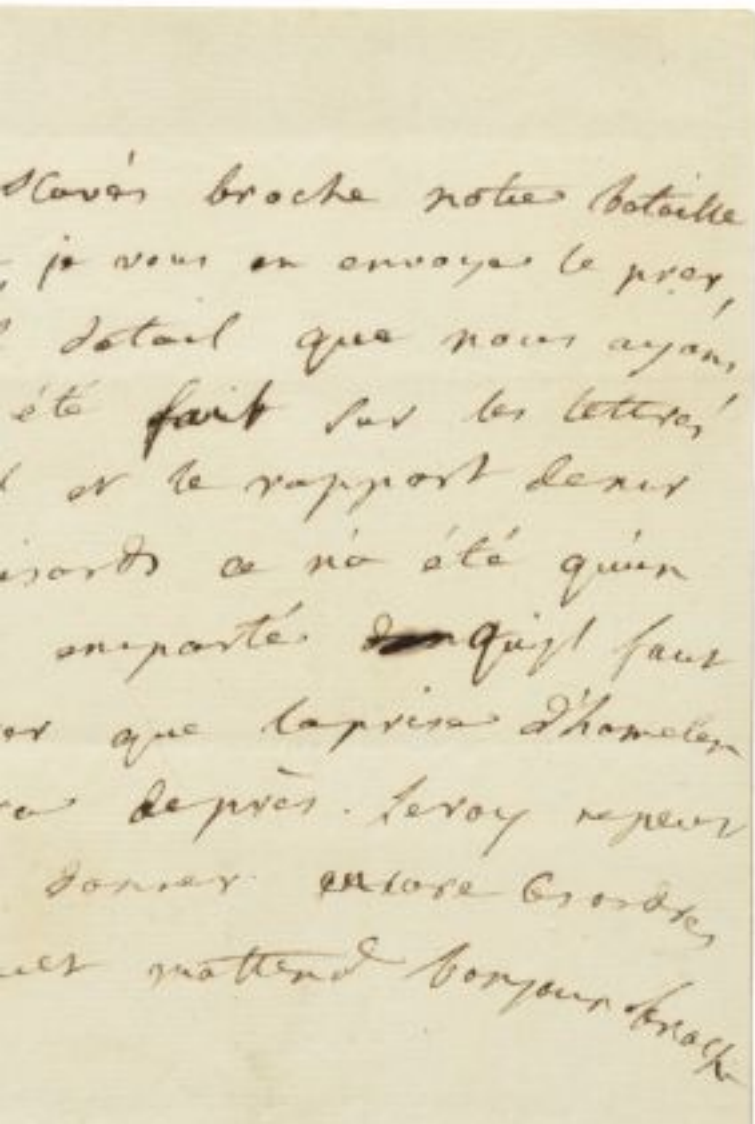 scavés broche notre bataille
je vous en envoye le prer,
detail que nous ayons,
été fait sur les lettres
et le rapport de mr
ce n'a été qu'un
emporté qu'yl faut
que la prise d'hamelen
de près. Le roy ne peut
donner encore les ordres
m'attend bonjour broche